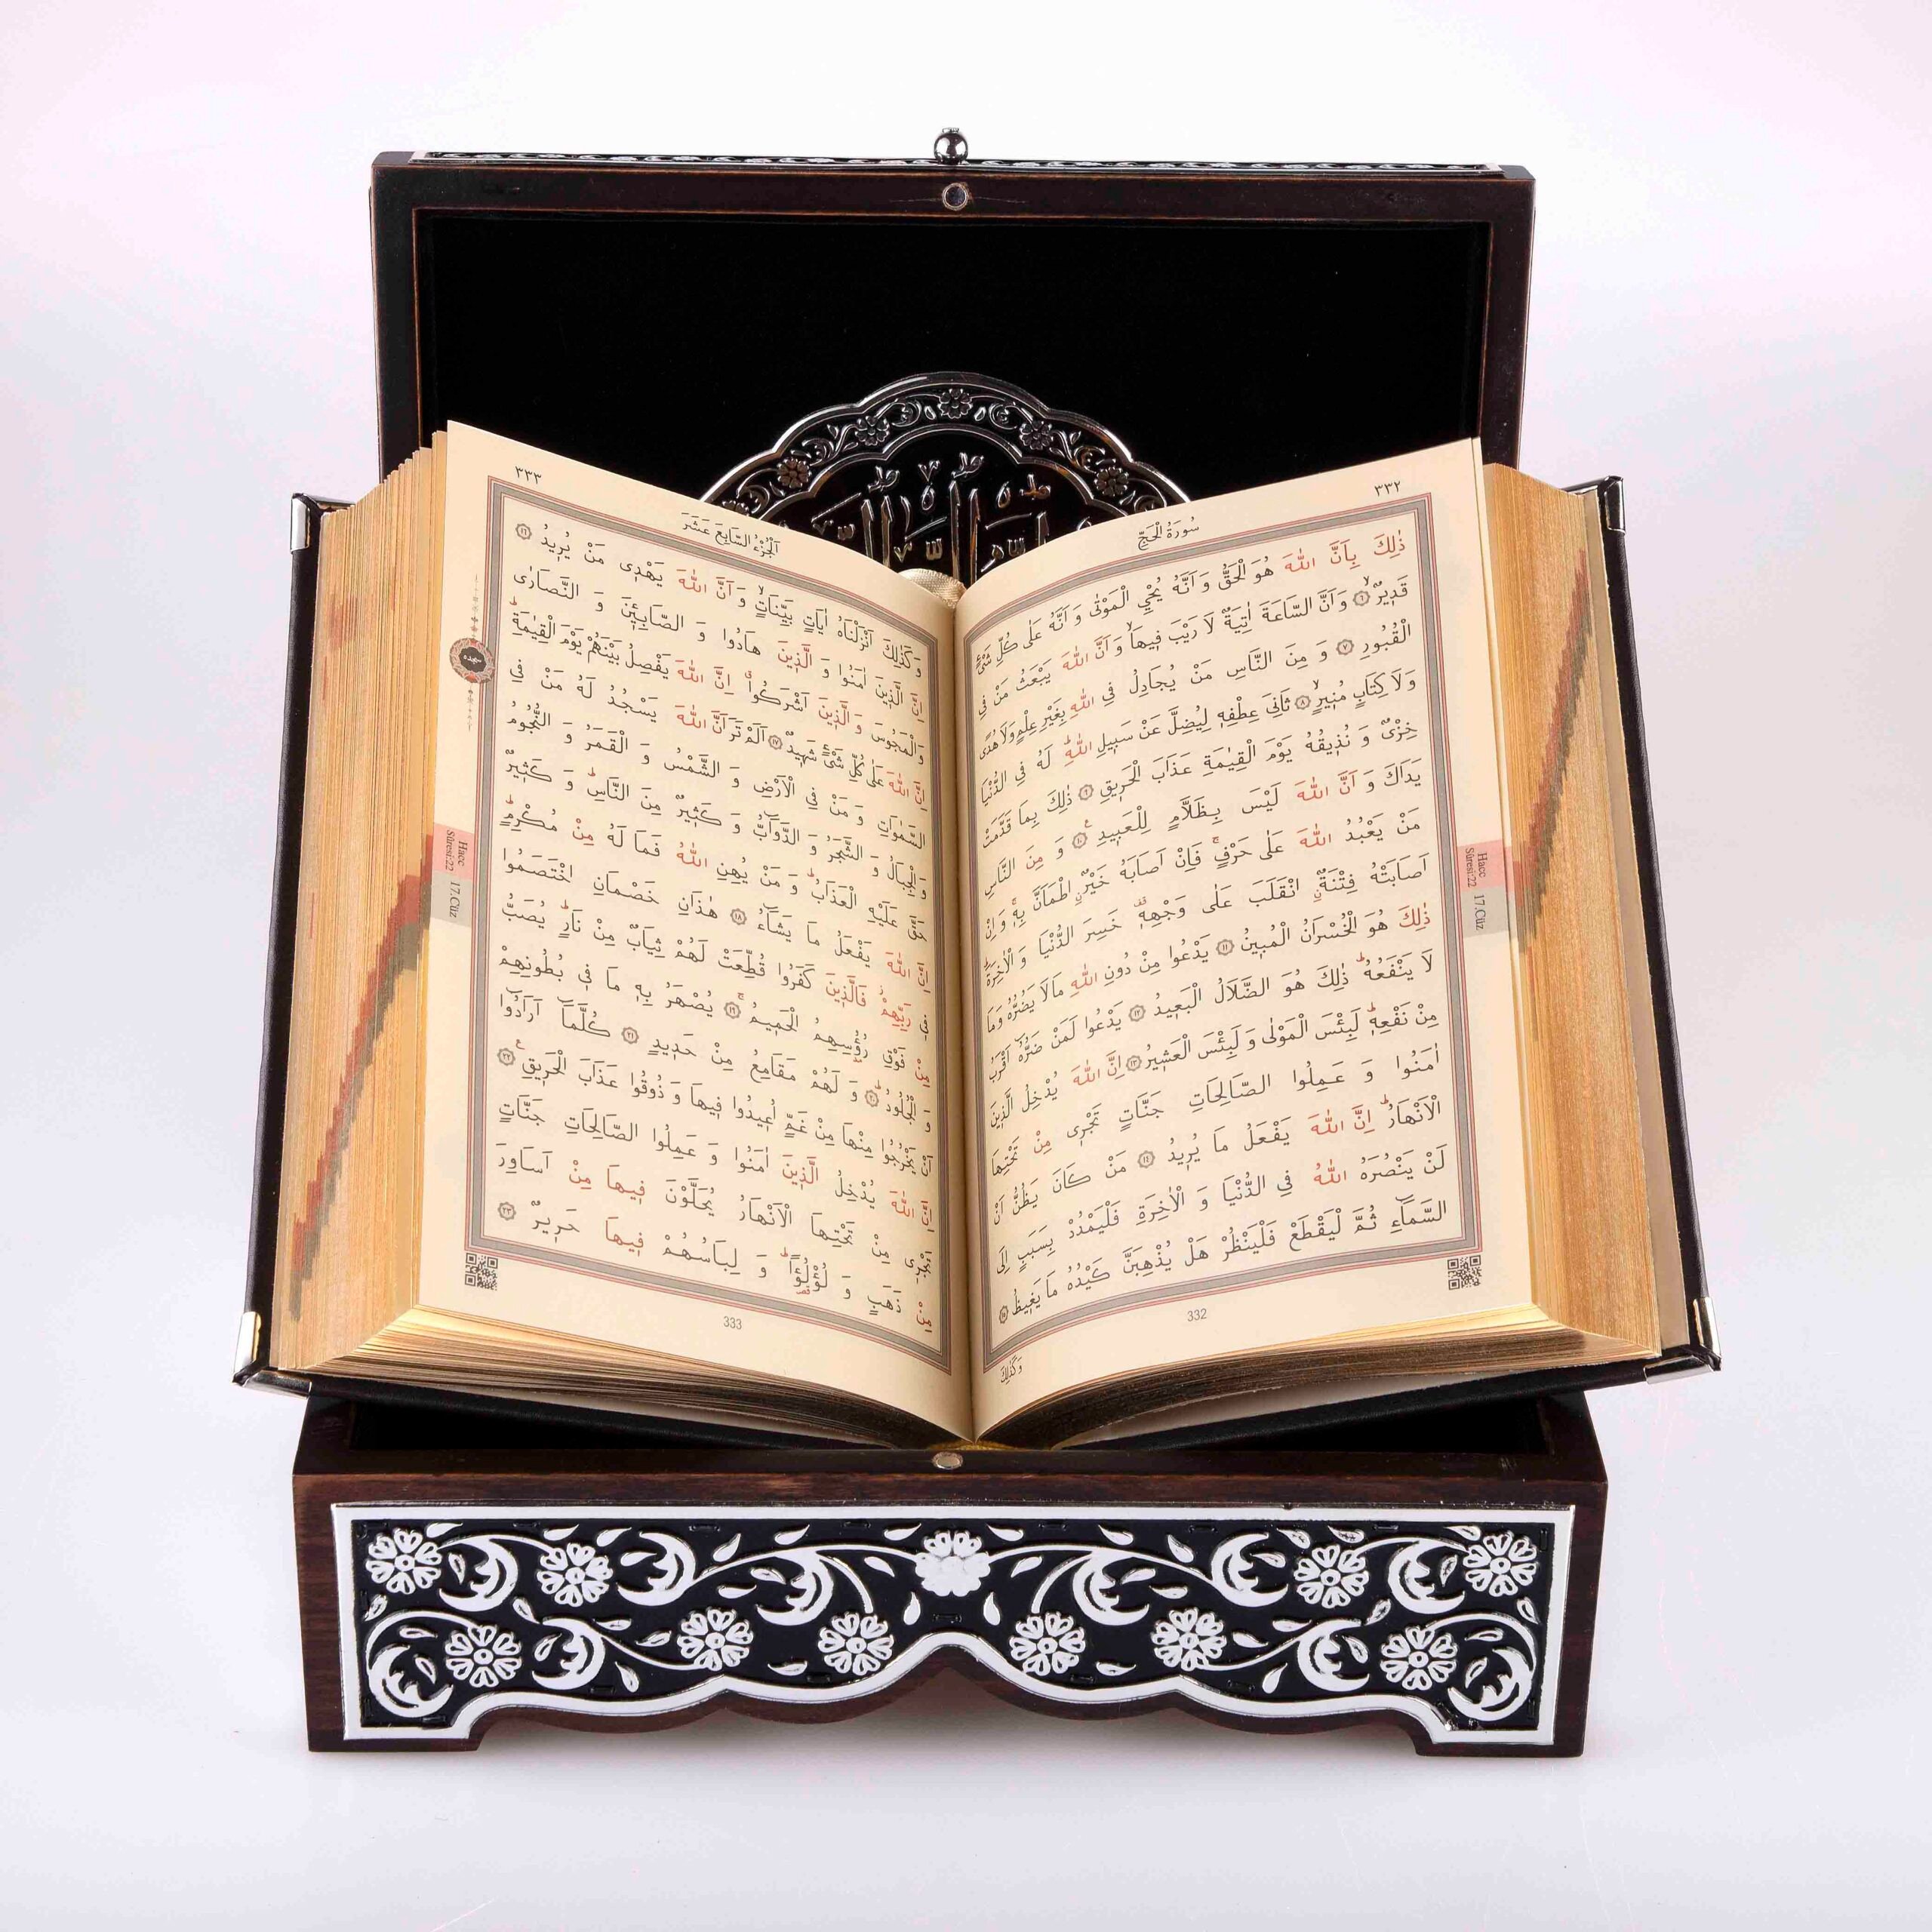 ٣٣٢
سُورَةُ الْحَجِّ
ذٰلِكَ بِاَنَّ اللّٰهَ هُوَ الْحَقُّ وَ اَنَّهُ يُحْيِ الْمَوْتٰى وَ اَنَّهُ عَلٰى كُلِّ شَىْءٍ
قَد۪يرٌۙ ٦ وَ اَنَّ السَّاعَةَ اٰتِيَةٌ لَا رَيْبَ ف۪يهَاۙ وَ اَنَّ اللّٰهَ يَبْعَثُ مَنْ فِي
الْقُبُورِ ٧ وَ مِنَ النَّاسِ مَنْ يُجَادِلُ فِي اللّٰهِ بِغَيْرِ عِلْمٍ وَلَا هُدًى
وَ لَا كِتَابٍ مُن۪يرٍۙ ٨ ثَانِىَ عِطْفِه۪ لِيُضِلَّ عَنْ سَب۪يلِ اللّٰهِۜ لَهُ فِي الدُّنْيَا
خِزْىٌ وَ نُذ۪يقُهُ يَوْمَ الْقِيٰمَةِ عَذَابَ الْحَر۪يقِ ٩ ذٰلِكَ بِمَا قَدَّمَتْ
يَدَاكَ وَ اَنَّ اللّٰهَ لَيْسَ بِظَلَّامٍ لِلْعَب۪يدِ ١٠ وَ مِنَ النَّاسِ
مَنْ يَعْبُدُ اللّٰهَ عَلٰى حَرْفٍۚ فَاِنْ اَصَابَهُ خَيْرٌۨ اطْمَاَنَّ بِه۪ۚ وَ اِنْ
اَصَابَتْهُ فِتْنَةٌۨ انْقَلَبَ عَلٰى وَجْهِه۪ۚ خَسِرَ الدُّنْيَا وَ الْاٰخِرَةَۜ
ذٰلِكَ هُوَ الْخُسْرَانُ الْمُب۪ينُ ١١ يَدْعُوا مِنْ دُونِ اللّٰهِ مَا لَا يَضُرُّهُ وَ مَا
لَا يَنْفَعُهُۜ ذٰلِكَ هُوَ الضَّلَالُ الْبَع۪يدُ ١٢ يَدْعُوا لَمَنْ ضَرُّهُ اَقْرَبُ
مِنْ نَفْعِه۪ۜ لَبِئْسَ الْمَوْلٰى وَ لَبِئْسَ الْعَش۪يرُ ١٣ اِنَّ اللّٰهَ يُدْخِلُ الَّذ۪ينَ
اٰمَنُوا وَ عَمِلُوا الصَّالِحَاتِ جَنَّاتٍ تَجْر۪ى مِنْ تَحْتِهَا
الْاَنْهَارُۜ اِنَّ اللّٰهَ يَفْعَلُ مَا يُر۪يدُ ١٤ مَنْ كَانَ يَظُنُّ اَنْ
لَنْ يَنْصُرَهُ اللّٰهُ فِي الدُّنْيَا وَ الْاٰخِرَةِ فَلْيَمْدُدْ بِسَبَبٍ اِلَى
السَّمَٓاءِ ثُمَّ لْيَقْطَعْ فَلْيَنْظُرْ هَلْ يُذْهِبَنَّ كَيْدُهُ مَا يَغ۪يظُ ١٥
332
وَكَذٰلِكَ
Hacc
Sûresi:22
17.Cüz
٣٣٣
اَلْجُزْءُ السَّابِعَ عَشَرَ
وَ كَذٰلِكَ اَنْزَلْنَاهُ اٰيَاتٍ بَيِّنَاتٍۙ وَ اَنَّ اللّٰهَ يَهْد۪ى مَنْ يُر۪يدُ ١٦
اِنَّ الَّذ۪ينَ اٰمَنُوا وَ الَّذ۪ينَ هَادُوا وَ الصَّابِـ۪ٔينَ وَ النَّصَارٰى
وَ الْمَجُوسَ وَ الَّذ۪ينَ اَشْرَكُواۗ اِنَّ اللّٰهَ يَفْصِلُ بَيْنَهُمْ يَوْمَ الْقِيٰمَةِۜ
اِنَّ اللّٰهَ عَلٰى كُلِّ شَىْءٍ شَه۪يدٌ ١٧ اَلَمْ تَرَ اَنَّ اللّٰهَ يَسْجُدُ لَهُ مَنْ فِي
السَّمٰوَاتِ وَ مَنْ فِي الْاَرْضِ وَ الشَّمْسُ وَ الْقَمَرُ وَ النُّجُومُ
وَ الْجِبَالُ وَ الشَّجَرُ وَ الدَّوَٓابُّ وَ كَث۪يرٌ مِنَ النَّاسِۜ وَ كَث۪يرٌ
حَقَّ عَلَيْهِ الْعَذَابُۜ وَ مَنْ يُهِنِ اللّٰهُ فَمَا لَهُ مِنْ مُكْرِمٍۜ
اِنَّ اللّٰهَ يَفْعَلُ مَا يَشَٓاءُ ١٨ هٰذَانِ خَصْمَانِ اخْتَصَمُوا
ف۪ى رَبِّهِمْۘ فَالَّذ۪ينَ كَفَرُوا قُطِّعَتْ لَهُمْ ثِيَابٌ مِنْ نَارٍۜ يُصَبُّ
مِنْ فَوْقِ رُؤُسِهِمُ الْحَم۪يمُۚ ١٩ يُصْهَرُ بِه۪ مَا ف۪ى بُطُونِهِمْ
وَ الْجُلُودُۜ ٢٠ وَ لَهُمْ مَقَامِعُ مِنْ حَد۪يدٍ ٢١ كُلَّمَٓا اَرَادُٓوا
اَنْ يَخْرُجُوا مِنْهَا مِنْ غَمٍّ اُع۪يدُوا ف۪يهَا وَ ذُوقُوا عَذَابَ الْحَر۪يقِ ٢٢
اِنَّ اللّٰهَ يُدْخِلُ الَّذ۪ينَ اٰمَنُوا وَ عَمِلُوا الصَّالِحَاتِ جَنَّاتٍ
تَجْر۪ى مِنْ تَحْتِهَا الْاَنْهَارُ يُحَلَّوْنَ ف۪يهَا مِنْ اَسَاوِرَ
مِنْ ذَهَبٍ وَ لُؤْلُؤًاۜ وَ لِبَاسُهُمْ ف۪يهَا حَر۪يرٌ ٢٣
333
سجده
Hacc
Sûresi:22
17.Cüz